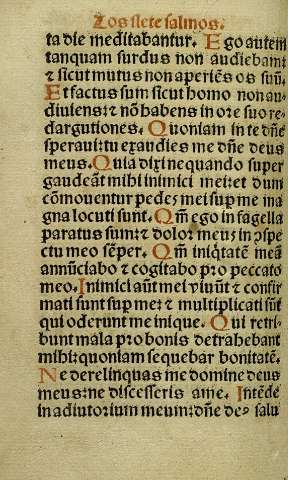 Los siete salmos.
ta die meditabantur. Ego autem
tanquam surdus non audiebam: 
⁊ sicut mutus non aperiẽs os suũ.
Et factus sum sicut homo non au-
diviens: ⁊ nõ habens in ore suo re-
dargutiones. Quoniam in te dñe
speravi: tu exaudies me dñe deus
meus. Quia dixi ne quando super
gaudeãt mihi inimici mei: et dum
cõmoventur pedes mei sup me ma
gna locuti sunt. Qm̃ ego in flagella
paratus sum: ⁊ dolor meus in ɔspe
ctu meo sẽper. Qm̃ iniq̃tatẽ meã
annũciabo ⁊ cogitabo pro peccato
meo. Inimici autẽ mei vivũt ⁊ confir
mati sunt sup me: ⁊ multiplicati sũt
qui oderunt me inique. Qui retri-
bunt mala pro bonis detrahebant
mihi: quoniam sequebar bonitatẽ.
Ne derelinquas me domine deus
meus: ne discesseris a me. Intẽde
in adiutorium meum: dñe de⁹ salu